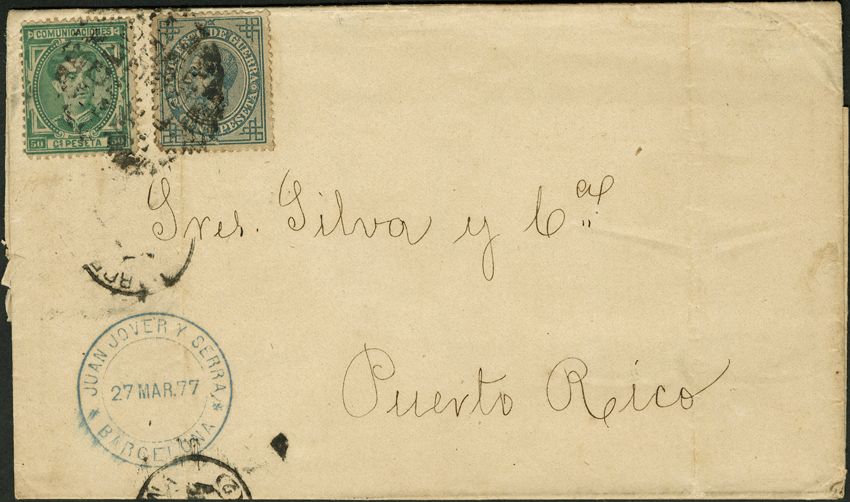 COMUNICACIONES
50 Cs PESETA 50
DE GUERRA
PESETA
Sres. Silva y Cª
Puerto Rico
JUAN JOVER Y SERRA
27 MAR.77
* BARCELONA *